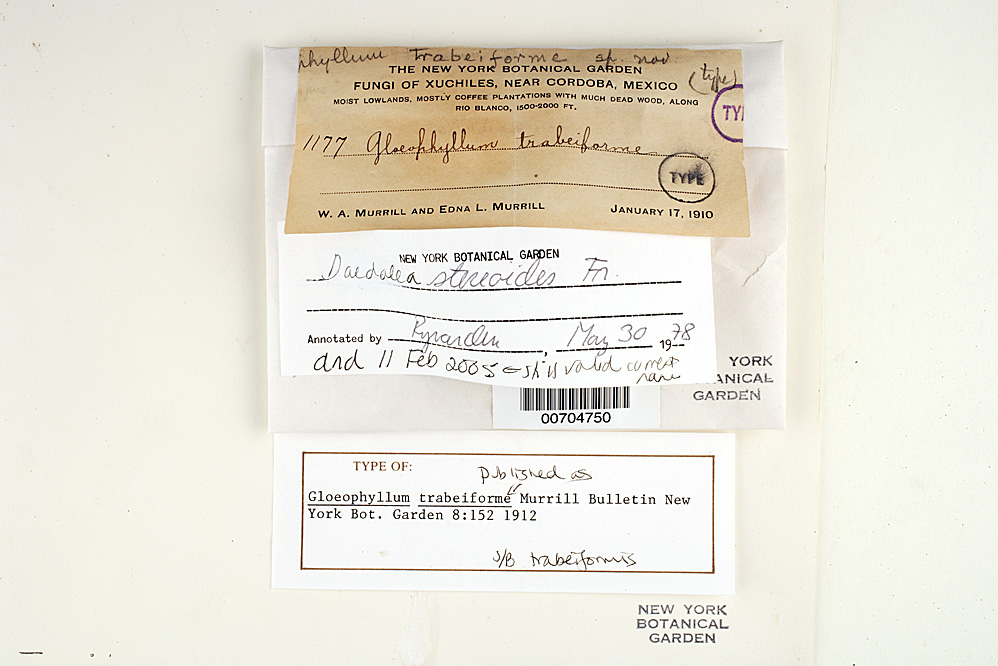 phyllum trabeiforme sp. nov.
(type)
THE NEW YORK BOTANICAL GARDEN
FUNGI OF XUCHILES, NEAR CORDOBA, MEXICO
MOIST LOWLANDS, MOSTLY COFFEE PLANTATIONS WITH MUCH DEAD WOOD, ALONG
RIO BLANCO, 1500-2000 FT.
TY
1177 Gloeophyllum trabeiforme
TYPE
W. A. MURRILL AND EDNA L. MURRILL JANUARY 17, 1910
NEW YORK BOTANICAL GARDEN
Daedalea stereoides Fr.
Annotated by Ryvarden, May 30 1978
and 11 Feb 2005 still valid current
name
YORK
TANICAL
GARDEN
00704750
TYPE OF: published as
Gloeophyllum trabeiforme Murrill Bulletin New
York Bot. Garden 8:152 1912
S/B trabeiformis
NEW YORK
BOTANICAL
GARDEN